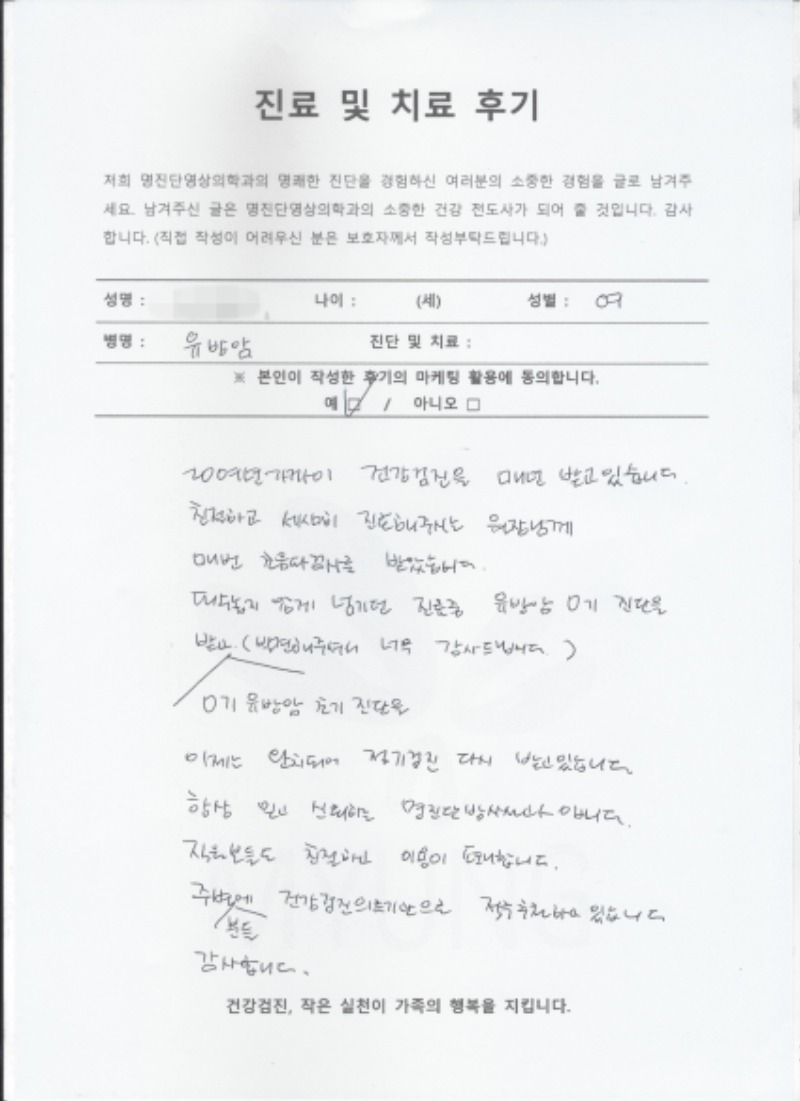 진료 및 치료 후기
저희 명진단영상의학과의 명쾌한 진단을 경험하신 여러분의 소중한 경험을 글로 남겨주
세요. 남겨주신 글은 명진단영상의학과의 소중한 건강 전도사가 되어 줄 것입니다. 감사
합니다. (직접 작성이 어려우신 분은 보호자께서 작성부탁드립니다.)
성명 : 나이 : (세) 성별 : 여
병명 : 유방암 진단 및 치료 :
※ 본인이 작성한 후기의 마케팅 활용에 동의합니다.
예 ☑ / 아니오 □
20여년 가까이 건강검진을 매년 받고있습니다.
친절하고 세심히 진료해주시는 원장님께
매번 받았습니다.
넘기던 진료중 유방암 0기 진단을
받고 (발견해주셔서 너무 감사드립니다.)
0기 유방암 초기 진단을
이제는 완치되어 정기검진 다시 받고있습니다.
항상 믿고 신뢰하는
직원분들도 친절하고 이용이 편리합니다.
주변에 건강검진의료기관으로 적극추천하고 있습니다
분들
감사합니다.
MYUNG
건강검진, 작은 실천이 가족의 행복을 지킵니다.